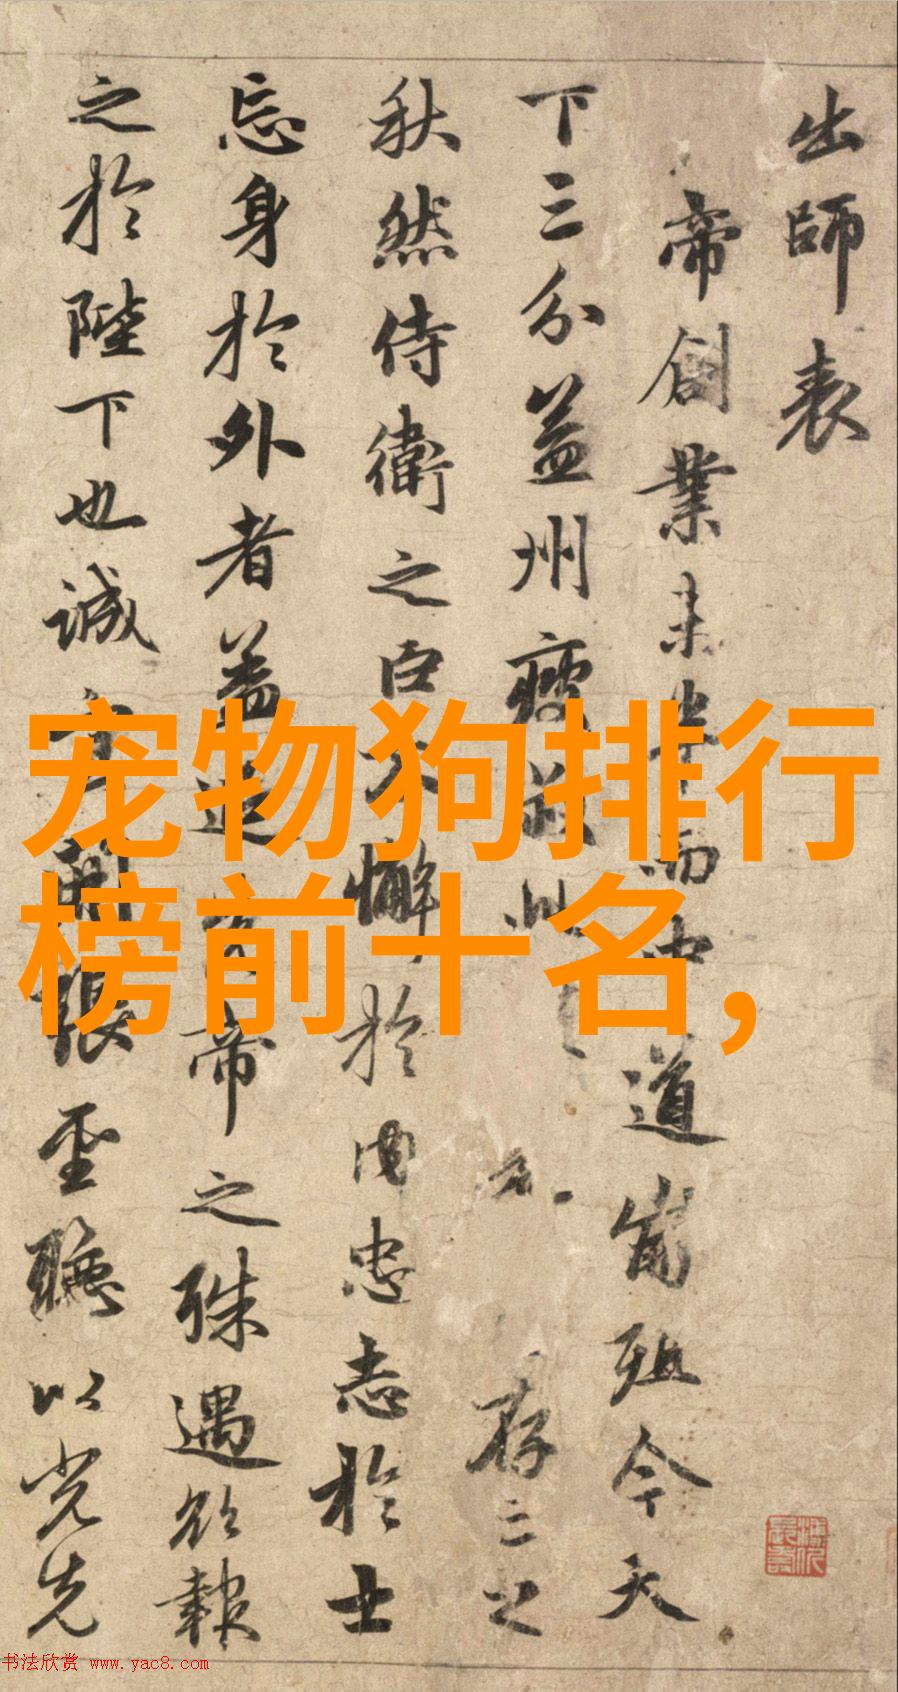 出師表
帝創業未半而中道崩殂今天
下三分益州疲敝此存亡之
秋然侍衛之臣不懈於內忠志於士
忘身於外者蓋追先帝之殊遇欲報
之於陛下也誠宜開張聖聽以光先
宠物狗排行
榜前十名,
书法欣赏 www.yac8.com